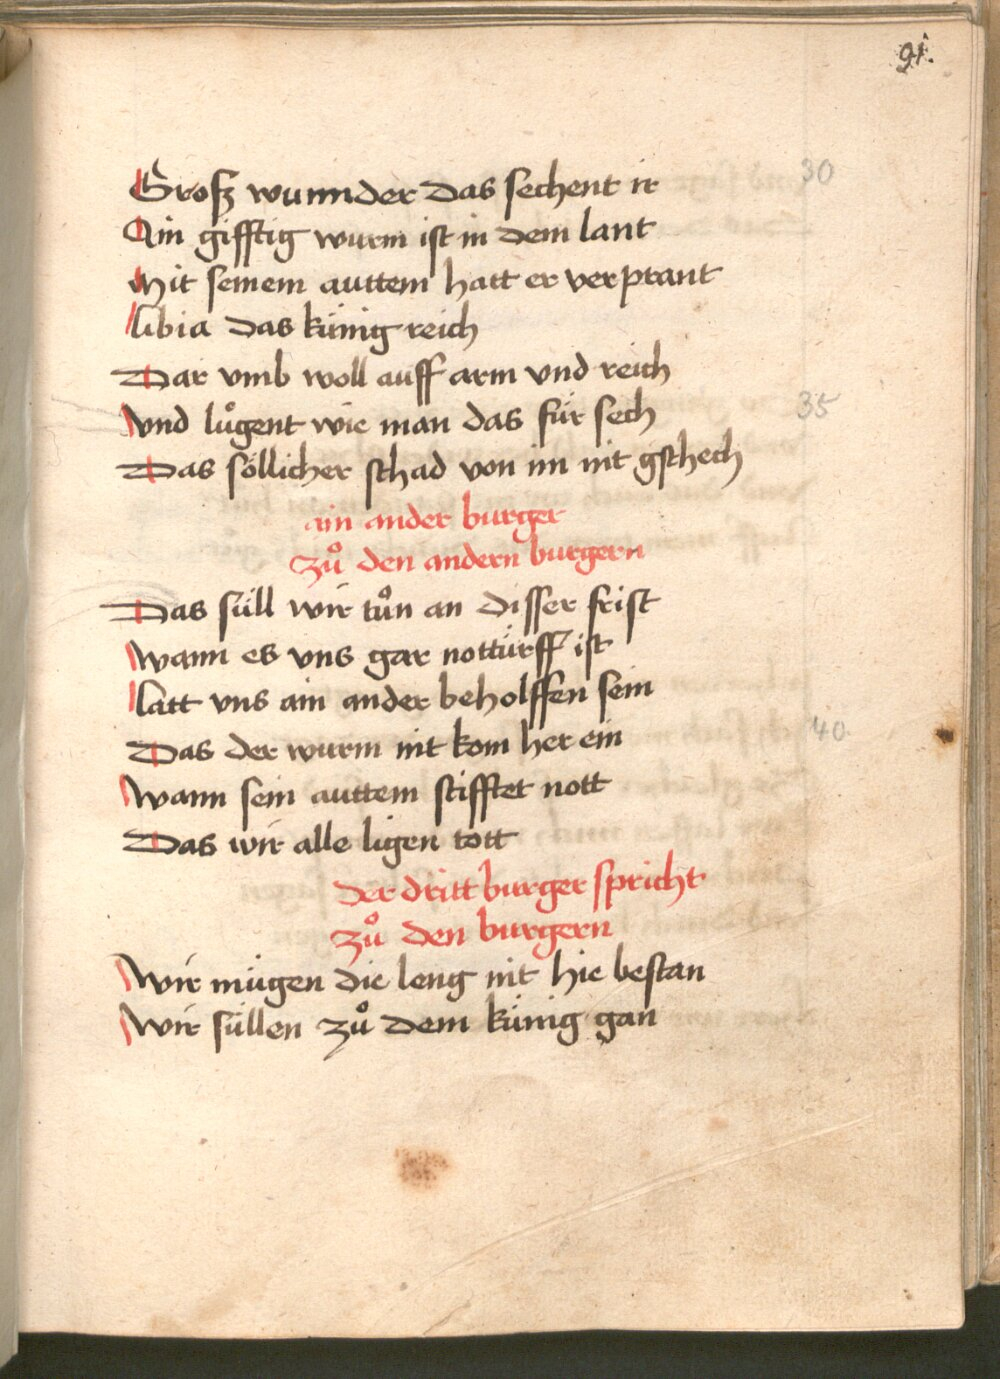 91.
Grosz wunnder das sechent ir 30
Ain gifftig wurm ist in dem lant
Mit seinem auttem hatt er verprant
libia das künig reich
Dar vmb woll auff arm vnd reich
vnd lůgent wie man das für sech 35
Das söllicher schad von im nit gschech
ain ander burger
zů den andern burgern
Das süll wir tůn an disser frist
wann es vns gar notturff ist
latt vns ain ander beholffen sein
Das der wurm nit kom her ein 40
wann sein auttem stifftet nott
Das wir alle ligen tott
der dritt burger spricht
zů den burgern
wir mügen die leng nit hie bestan
wir süllen zů dem künig gan